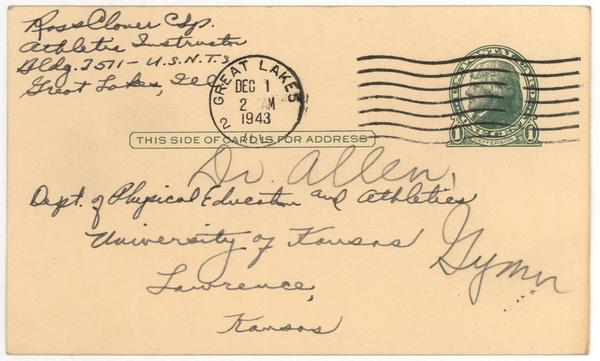 Ross Clover CSp.
Athletic Instructor
Bldg. 2511 - U.S.N.T.S
Great Lakes, Ill
GREAT LAKES
DEC 1
2 AM
1943
2 ILL.
1 JEFFERSON 1
THIS SIDE OF CARD IS FOR ADDRESS
Dr. Allen,
Dept. of Physical Education and Athletics
University of Kansas
Gymn
Lawrence,
Kansas